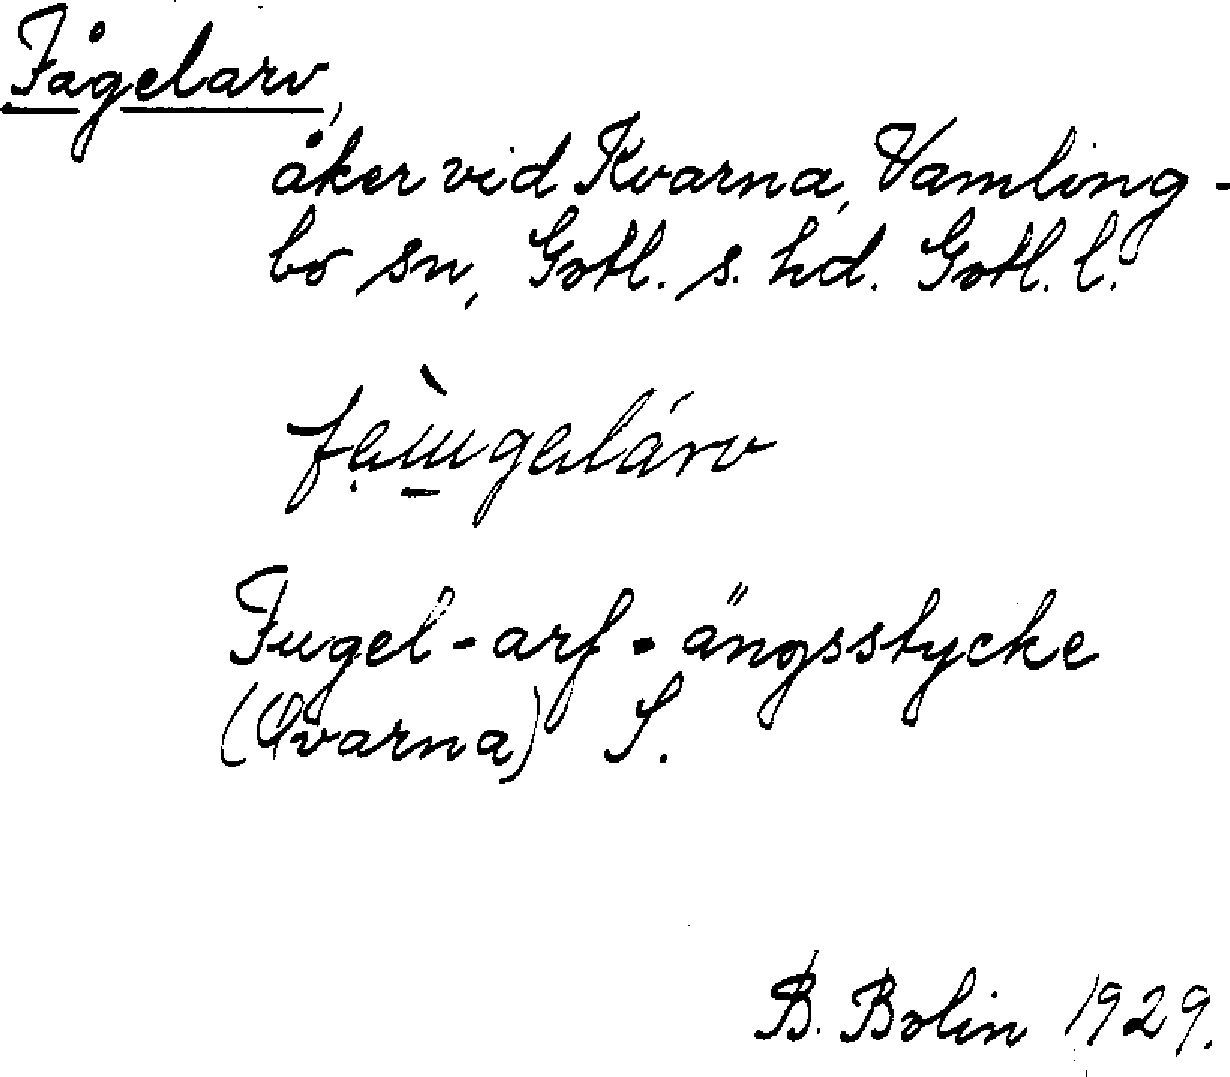 Fågelarv,
åker vid Kvarna, Vamling-
bo sn, Gotl. s. hd. Gotl. l.
Fugel-arf - ängsstycke
(Qvarna) S.
B. Bolin 1929.